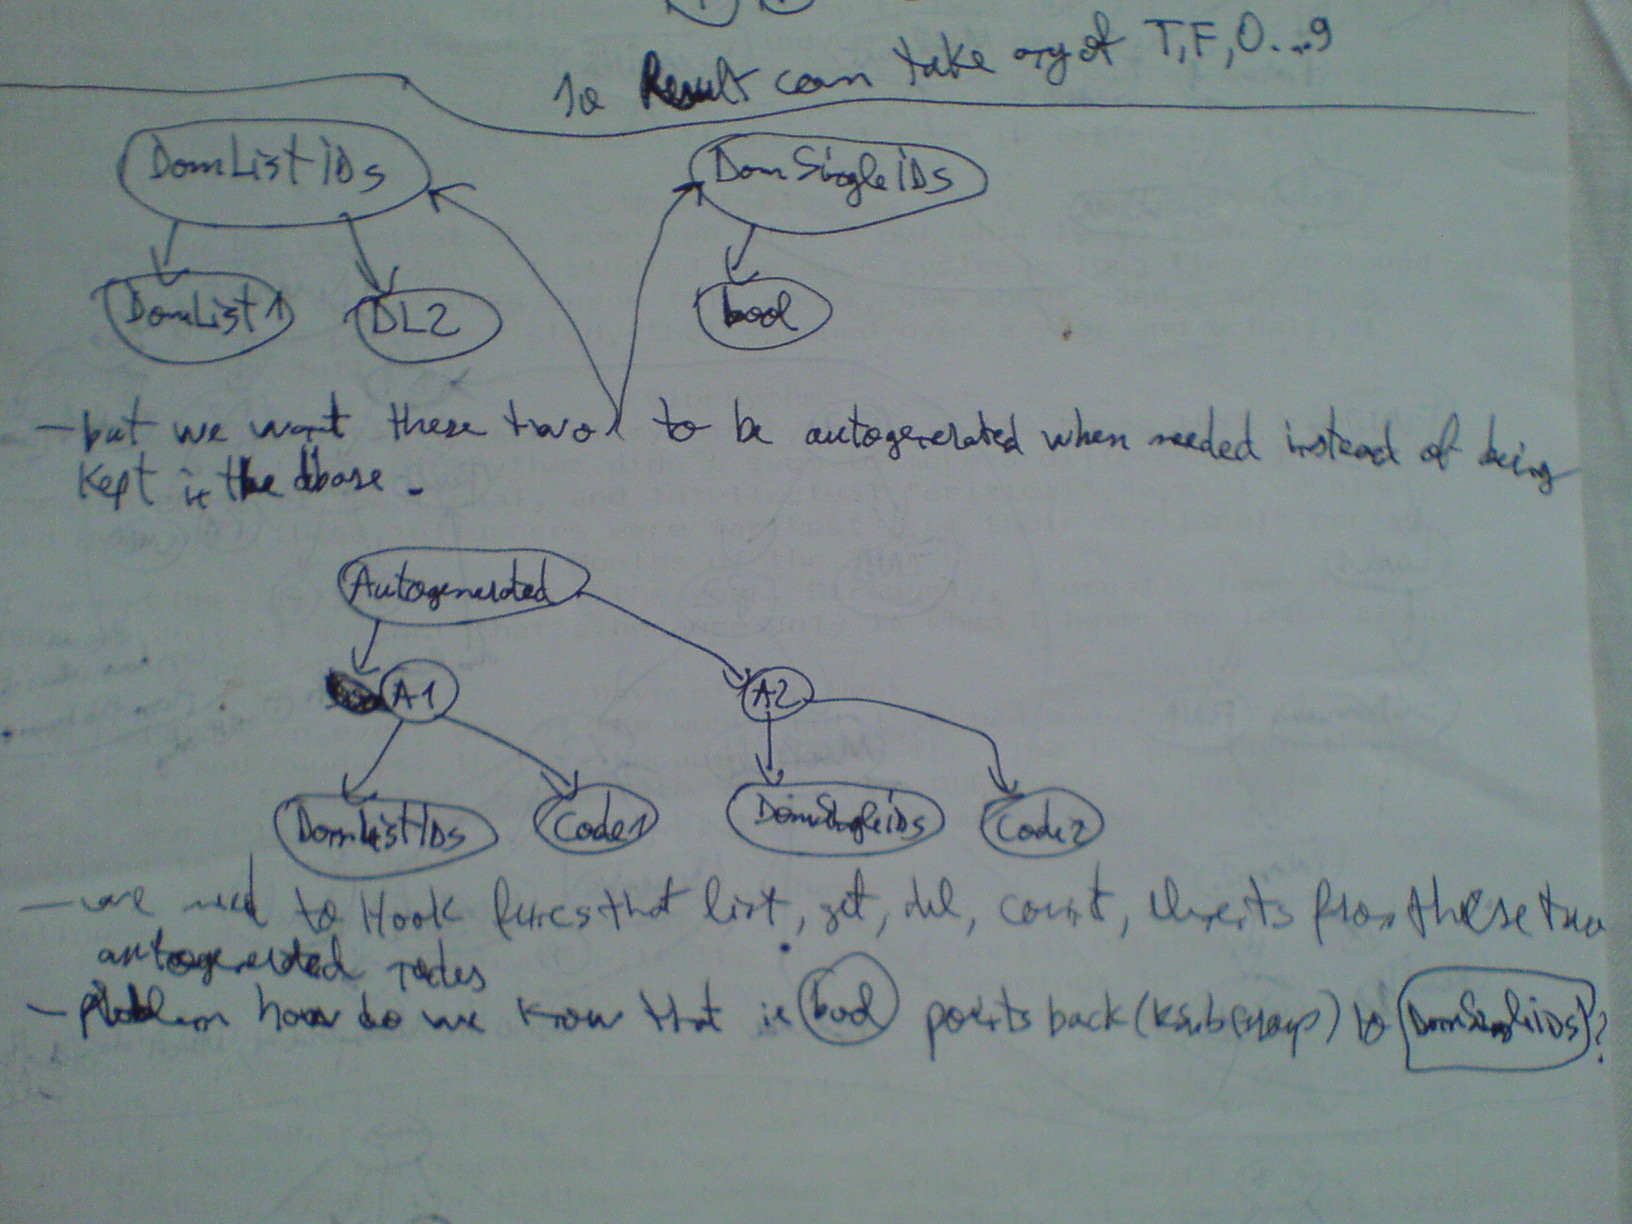 Result can take any of T, F, 0...9
DomListIDs
DomSingleIDs
DomList1
DL2
bool
- but we want these two to be autogenerated when needed instead of being
kept in the dbase.
Autogenerated
A1
A2
DomListIDs
Code1
DomSingleIDs
Code2
- we need to Hook funcs that list, get, del, count, elements from these two
autogenerated nodes
- problem how do we know that in bool points back ( ) to DomSingleIDs?